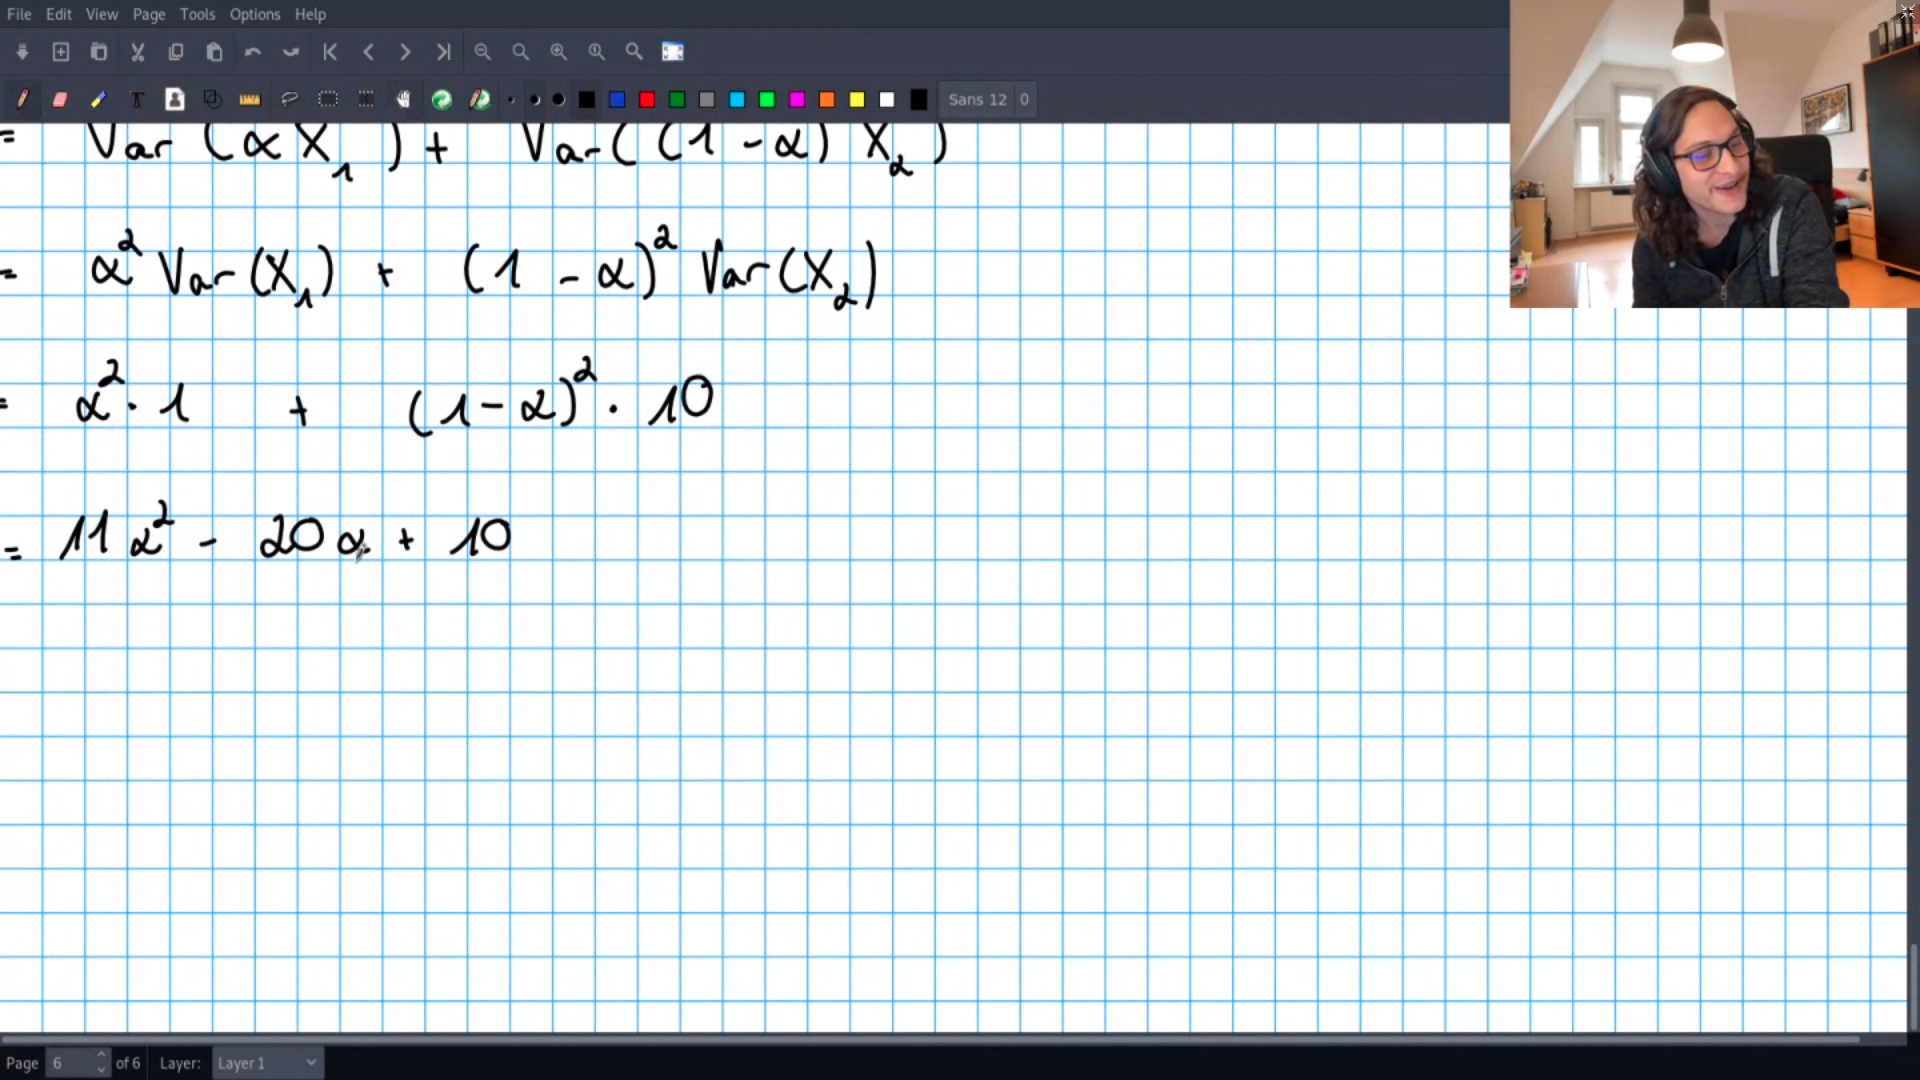 File Edit View Page Tools Options Help
Sans 12 0
= Var (αX₁) + Var((1-α) X₂)
= α² Var(X₁) + (1 - α)² Var(X₂)
= α² · 1 + (1-α)² · 10
= 11α² - 20α + 10
Page 6 of 6 Layer: Layer 1